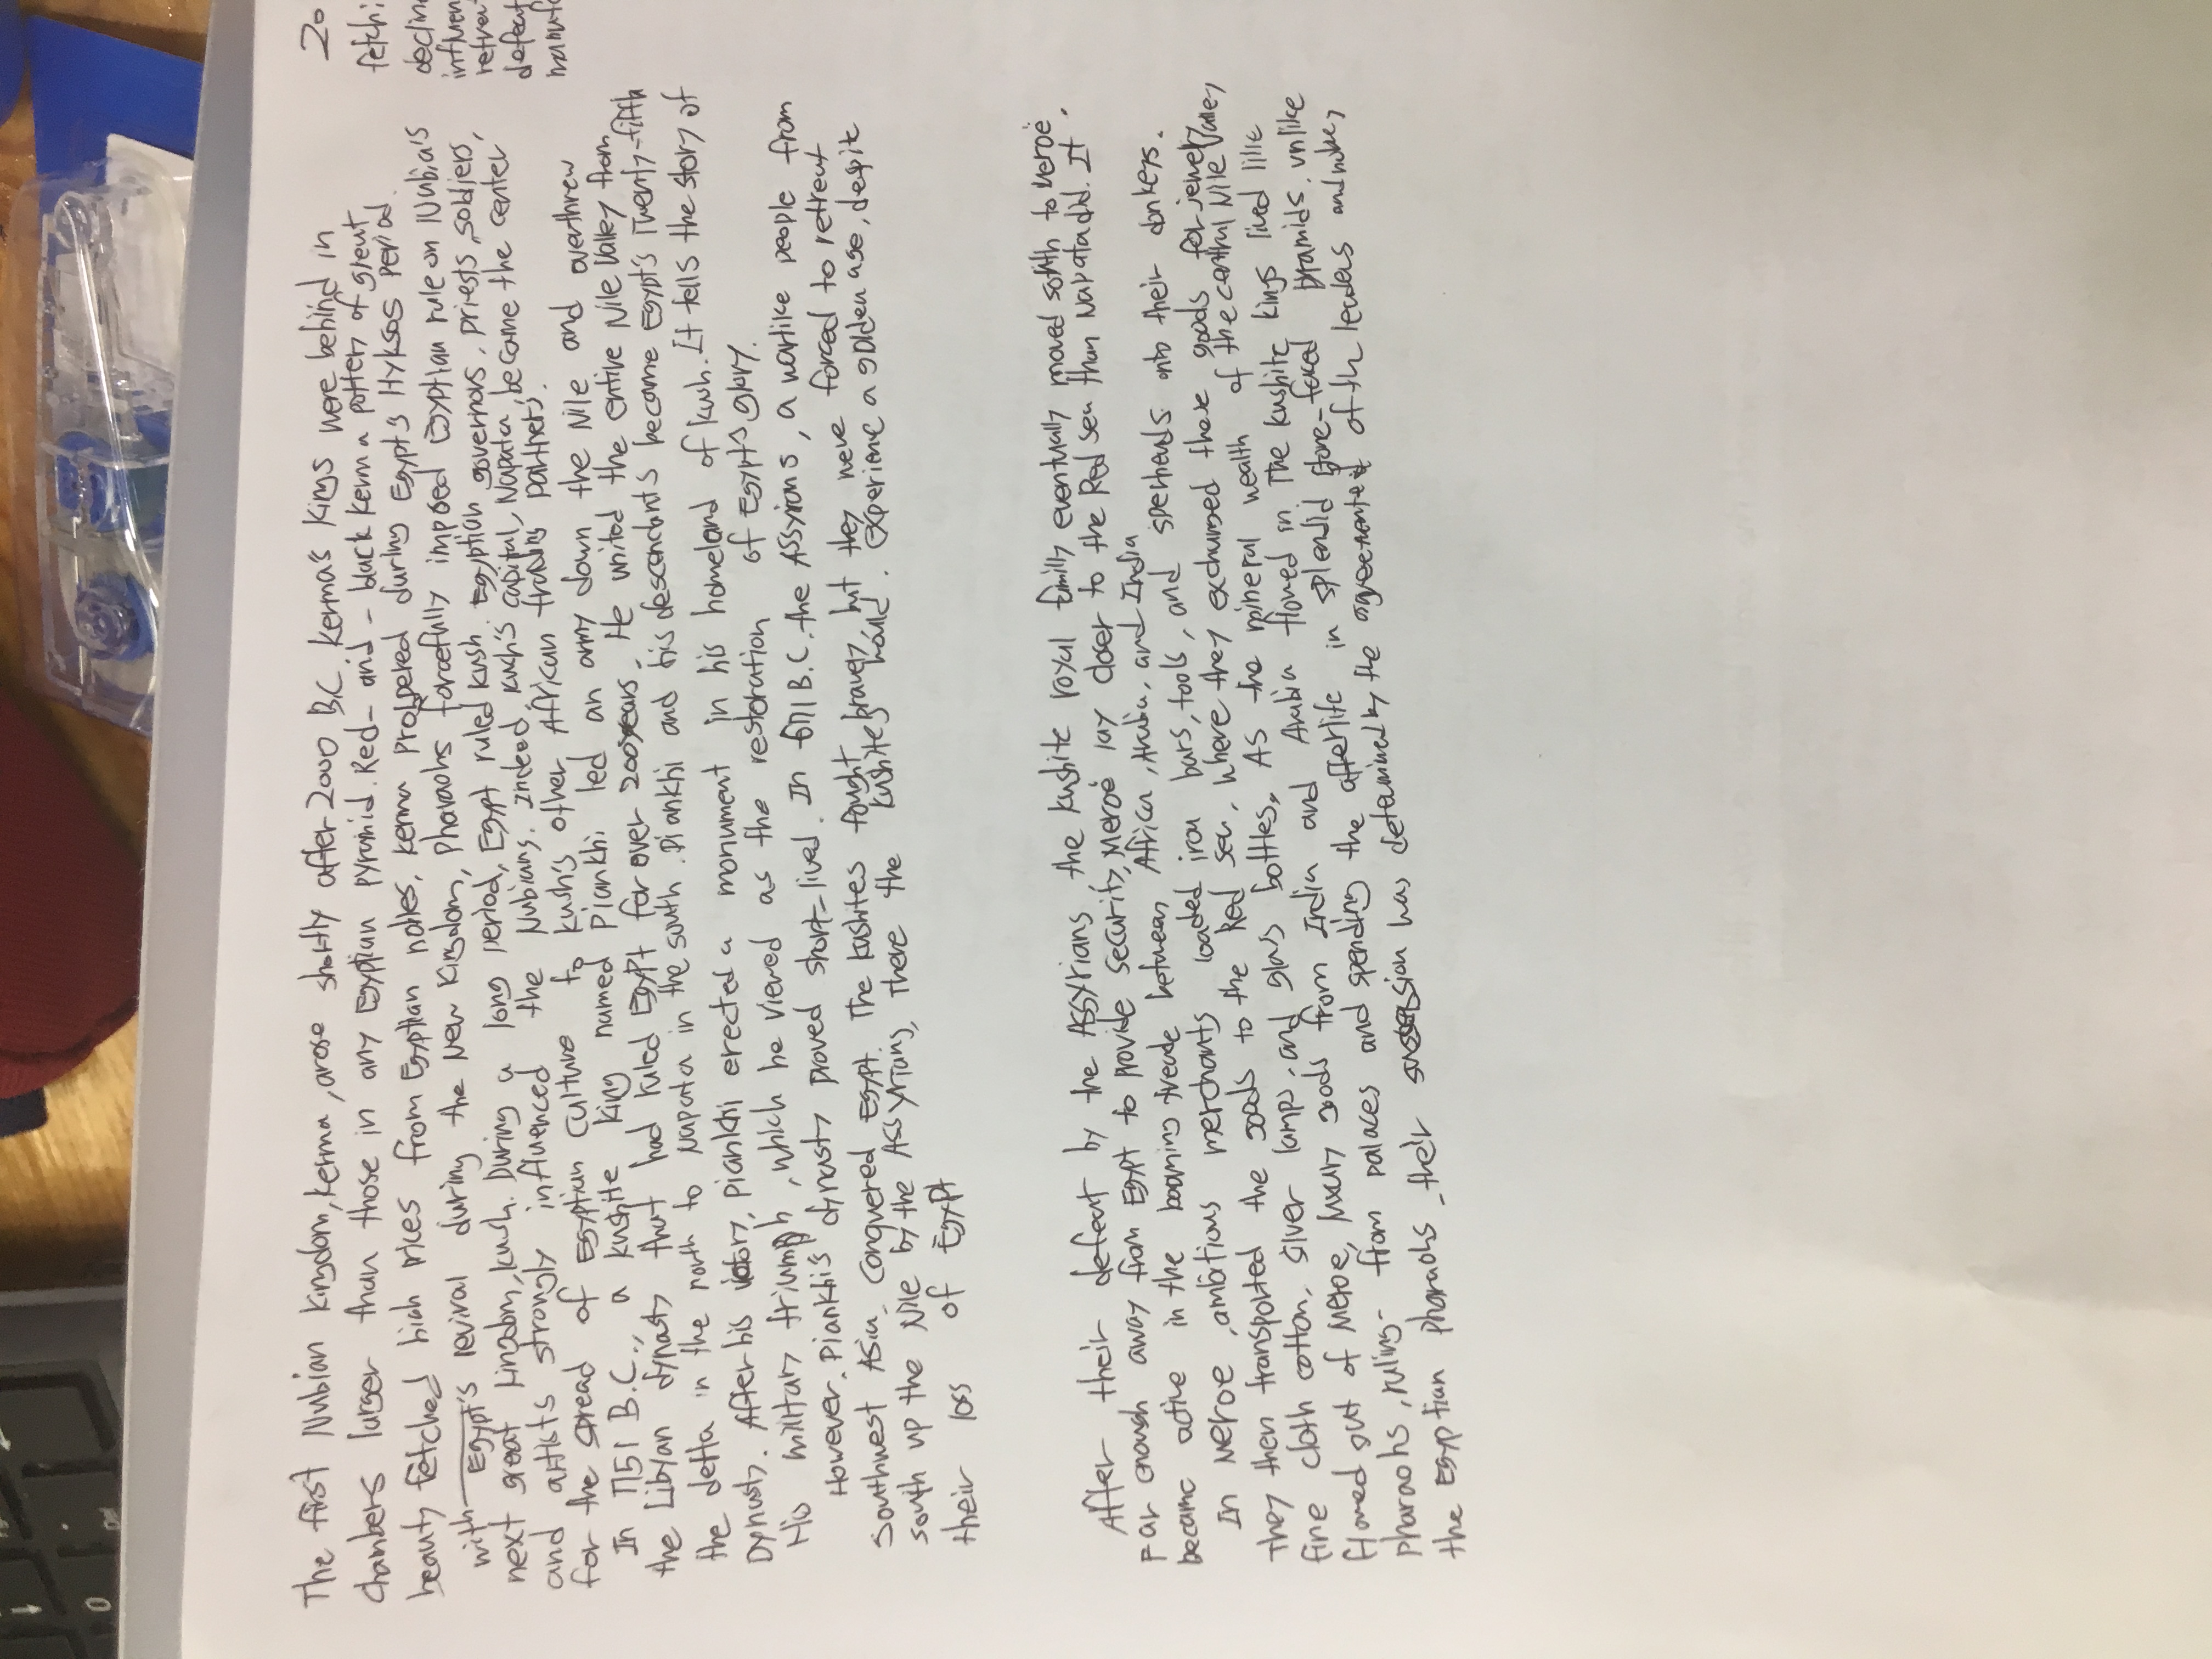 The first Nubian kingdom, kerma, arose shortly after 2000 B.C. kerma's kings were behind in
chambers larger than those in any Egyptian pyramid. Red- and - black kerma pottery of great
beauty fetched high prices from Egyptian nobles, kerma prospered during Egypt's Hyksos period.
with Egypt's revival during the New Kingdom, pharaohs forcefully imposed Egyptian rule on Nubia's
next great kingdom, kush. During a long period, Egypt ruled kush. Egyptian governors, priests, soldiers,
and artists strongly influenced the Nubians. Indeed kush's capital, Napata, became the center
for the spread of Egyptian culture to kush's other African trading pathers.
In 751 B.C., a kushite king named Piankhi led an army down the Nile and overthrew
the Libyan dynasty that had ruled Egypt for over 200 years. He united the entire Nile Valley from
the delta in the north to Napata in the south. Piankhi and his descendants became Egypt's Twenty-fifth
Dynasty. After his victory, Piankhi erected a monument in his homeland of kush. It tells the story of
His military triumph, which he viewed as the restoration of Egypt's glory.
However, Piankhi's dynasty proved short-lived. In 671 B.C. the Assyrians, a warlike people from
Southwest Asia, conquered Egypt. The kushites fought bravely but they were forced to retreat
south up the Nile by the Assyrians, There the kushite would experience a golden age, despite
their loss of Egypt
After their defeat by the Assyrians the kushite royal family eventually moved south to Meroë
Far enough away from Egypt to provide security, Meroë lay closer to the Red sea than Napata did. It,
became active in the booming treade between Africa, Arabia, and India
In Meroe, ambitious merchants loaded iron bars, tools, and spearheads onto their donkeys.
They then transported the goods to the Red sea, where they exchanged these goods for jewelry,
fine cloth cotton, silver lamps, and glass bottles, As the mineral wealth of the central Nile Valley
flowed out of Meroe, luxury goods from India and Arabia flowed in. The kushite kings lived like
pharaohs, ruling- from palaces and spending the afterlife in splendid stone-faced pyramids. unlike
the Egyptian pharaohs - their succession was determined by the agreement of the leaders and nobles,
20
fetchi
declin
influen
retreat
defeat